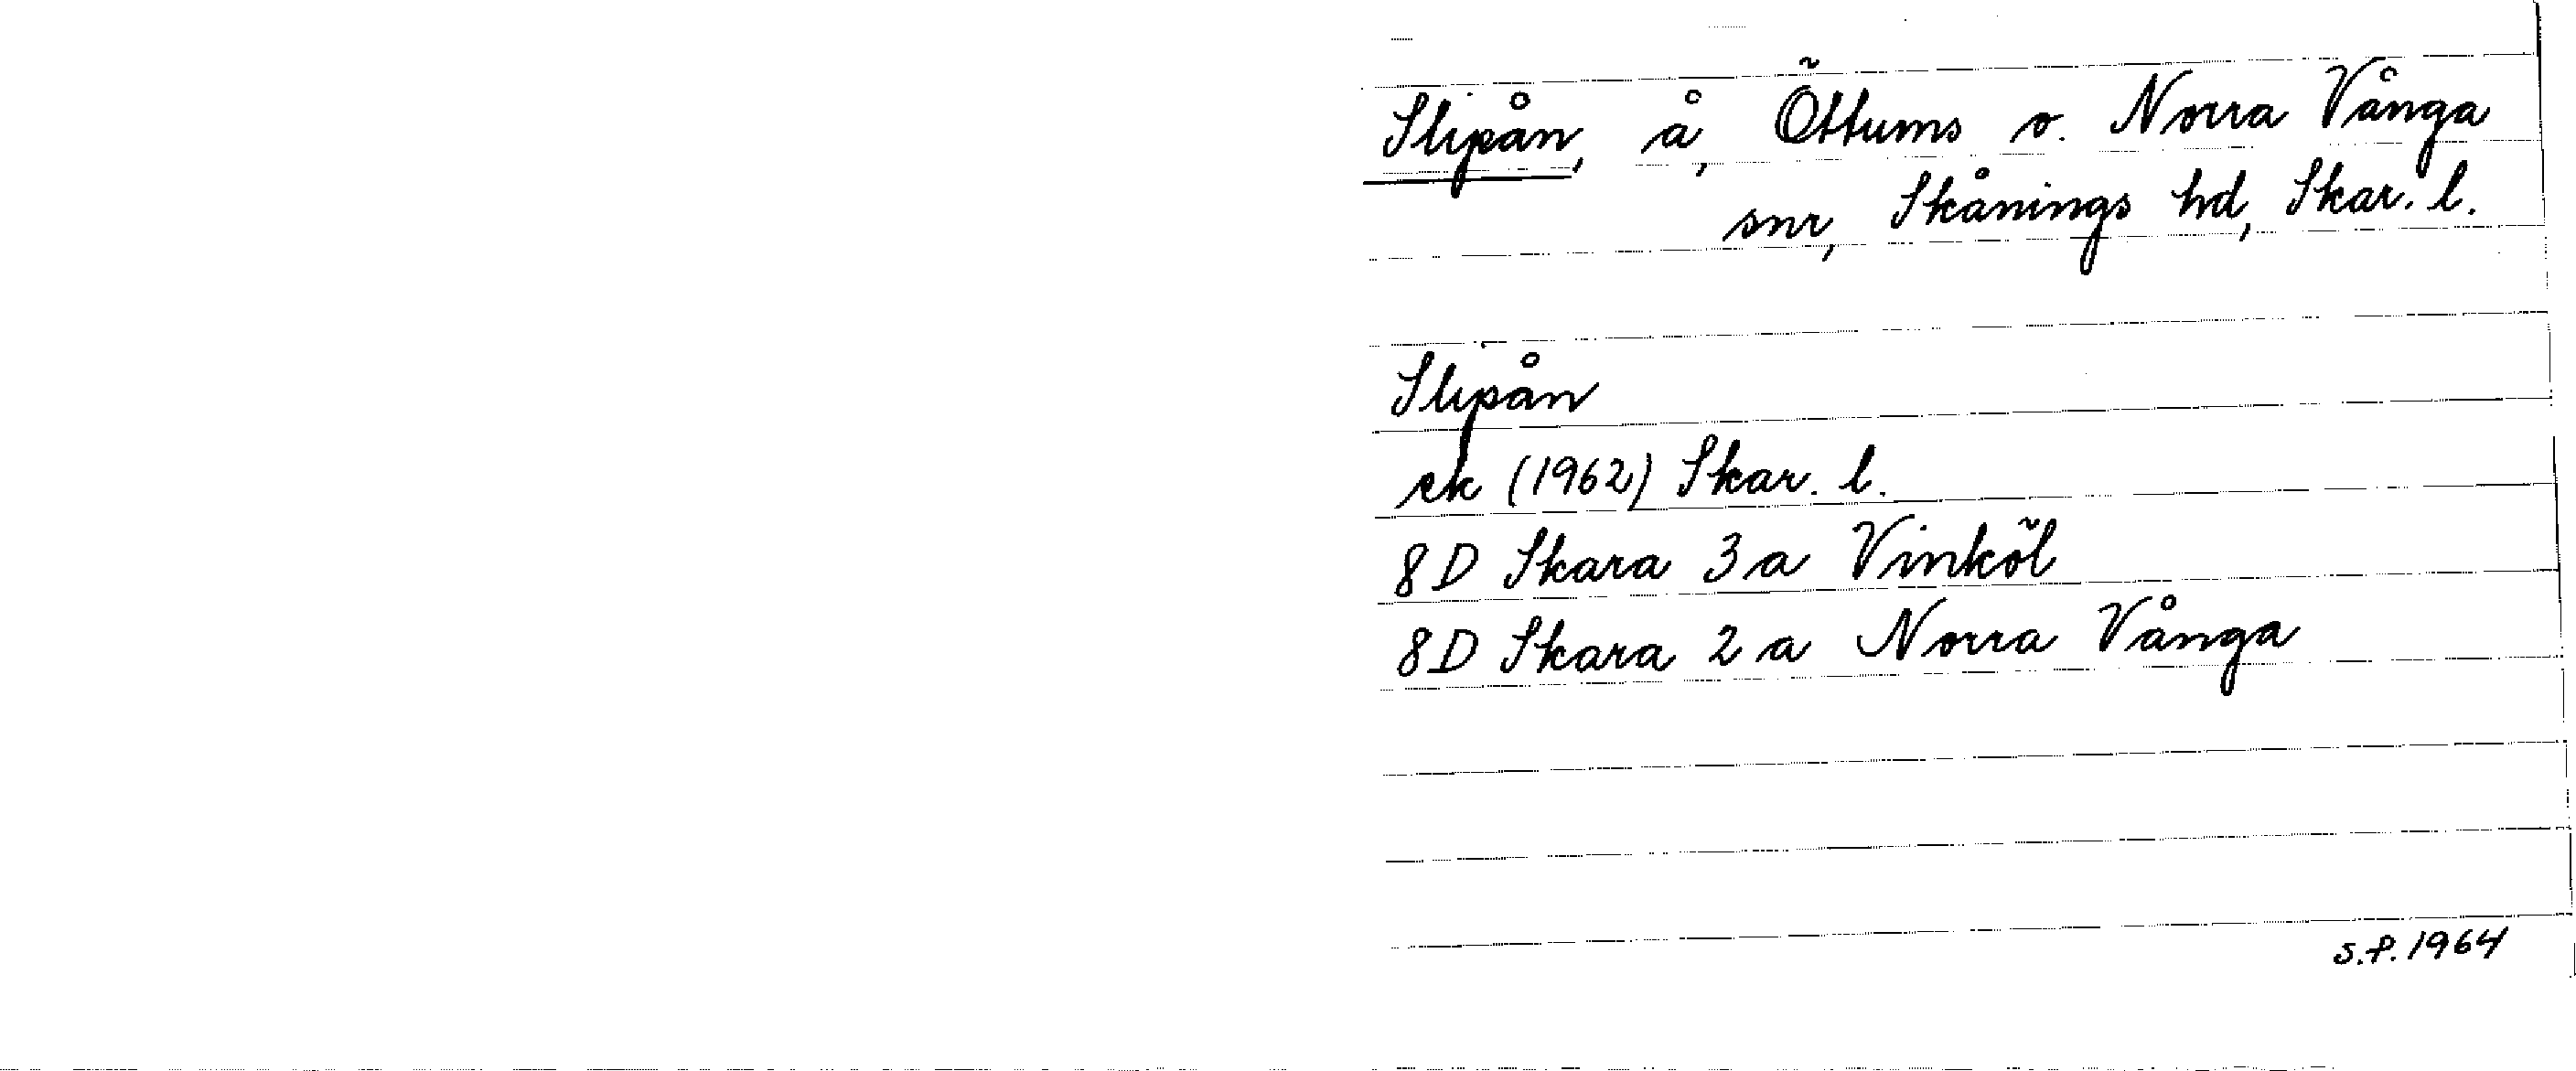 Slipån, å, Öttums o. Norra Vånga
snr, Skånings hd, Skar. l.
Slipån
ek (1962) Skar. l.
8D Skara 3a Vinköl
8D Skara 2a Norra Vånga
S.P. 1964